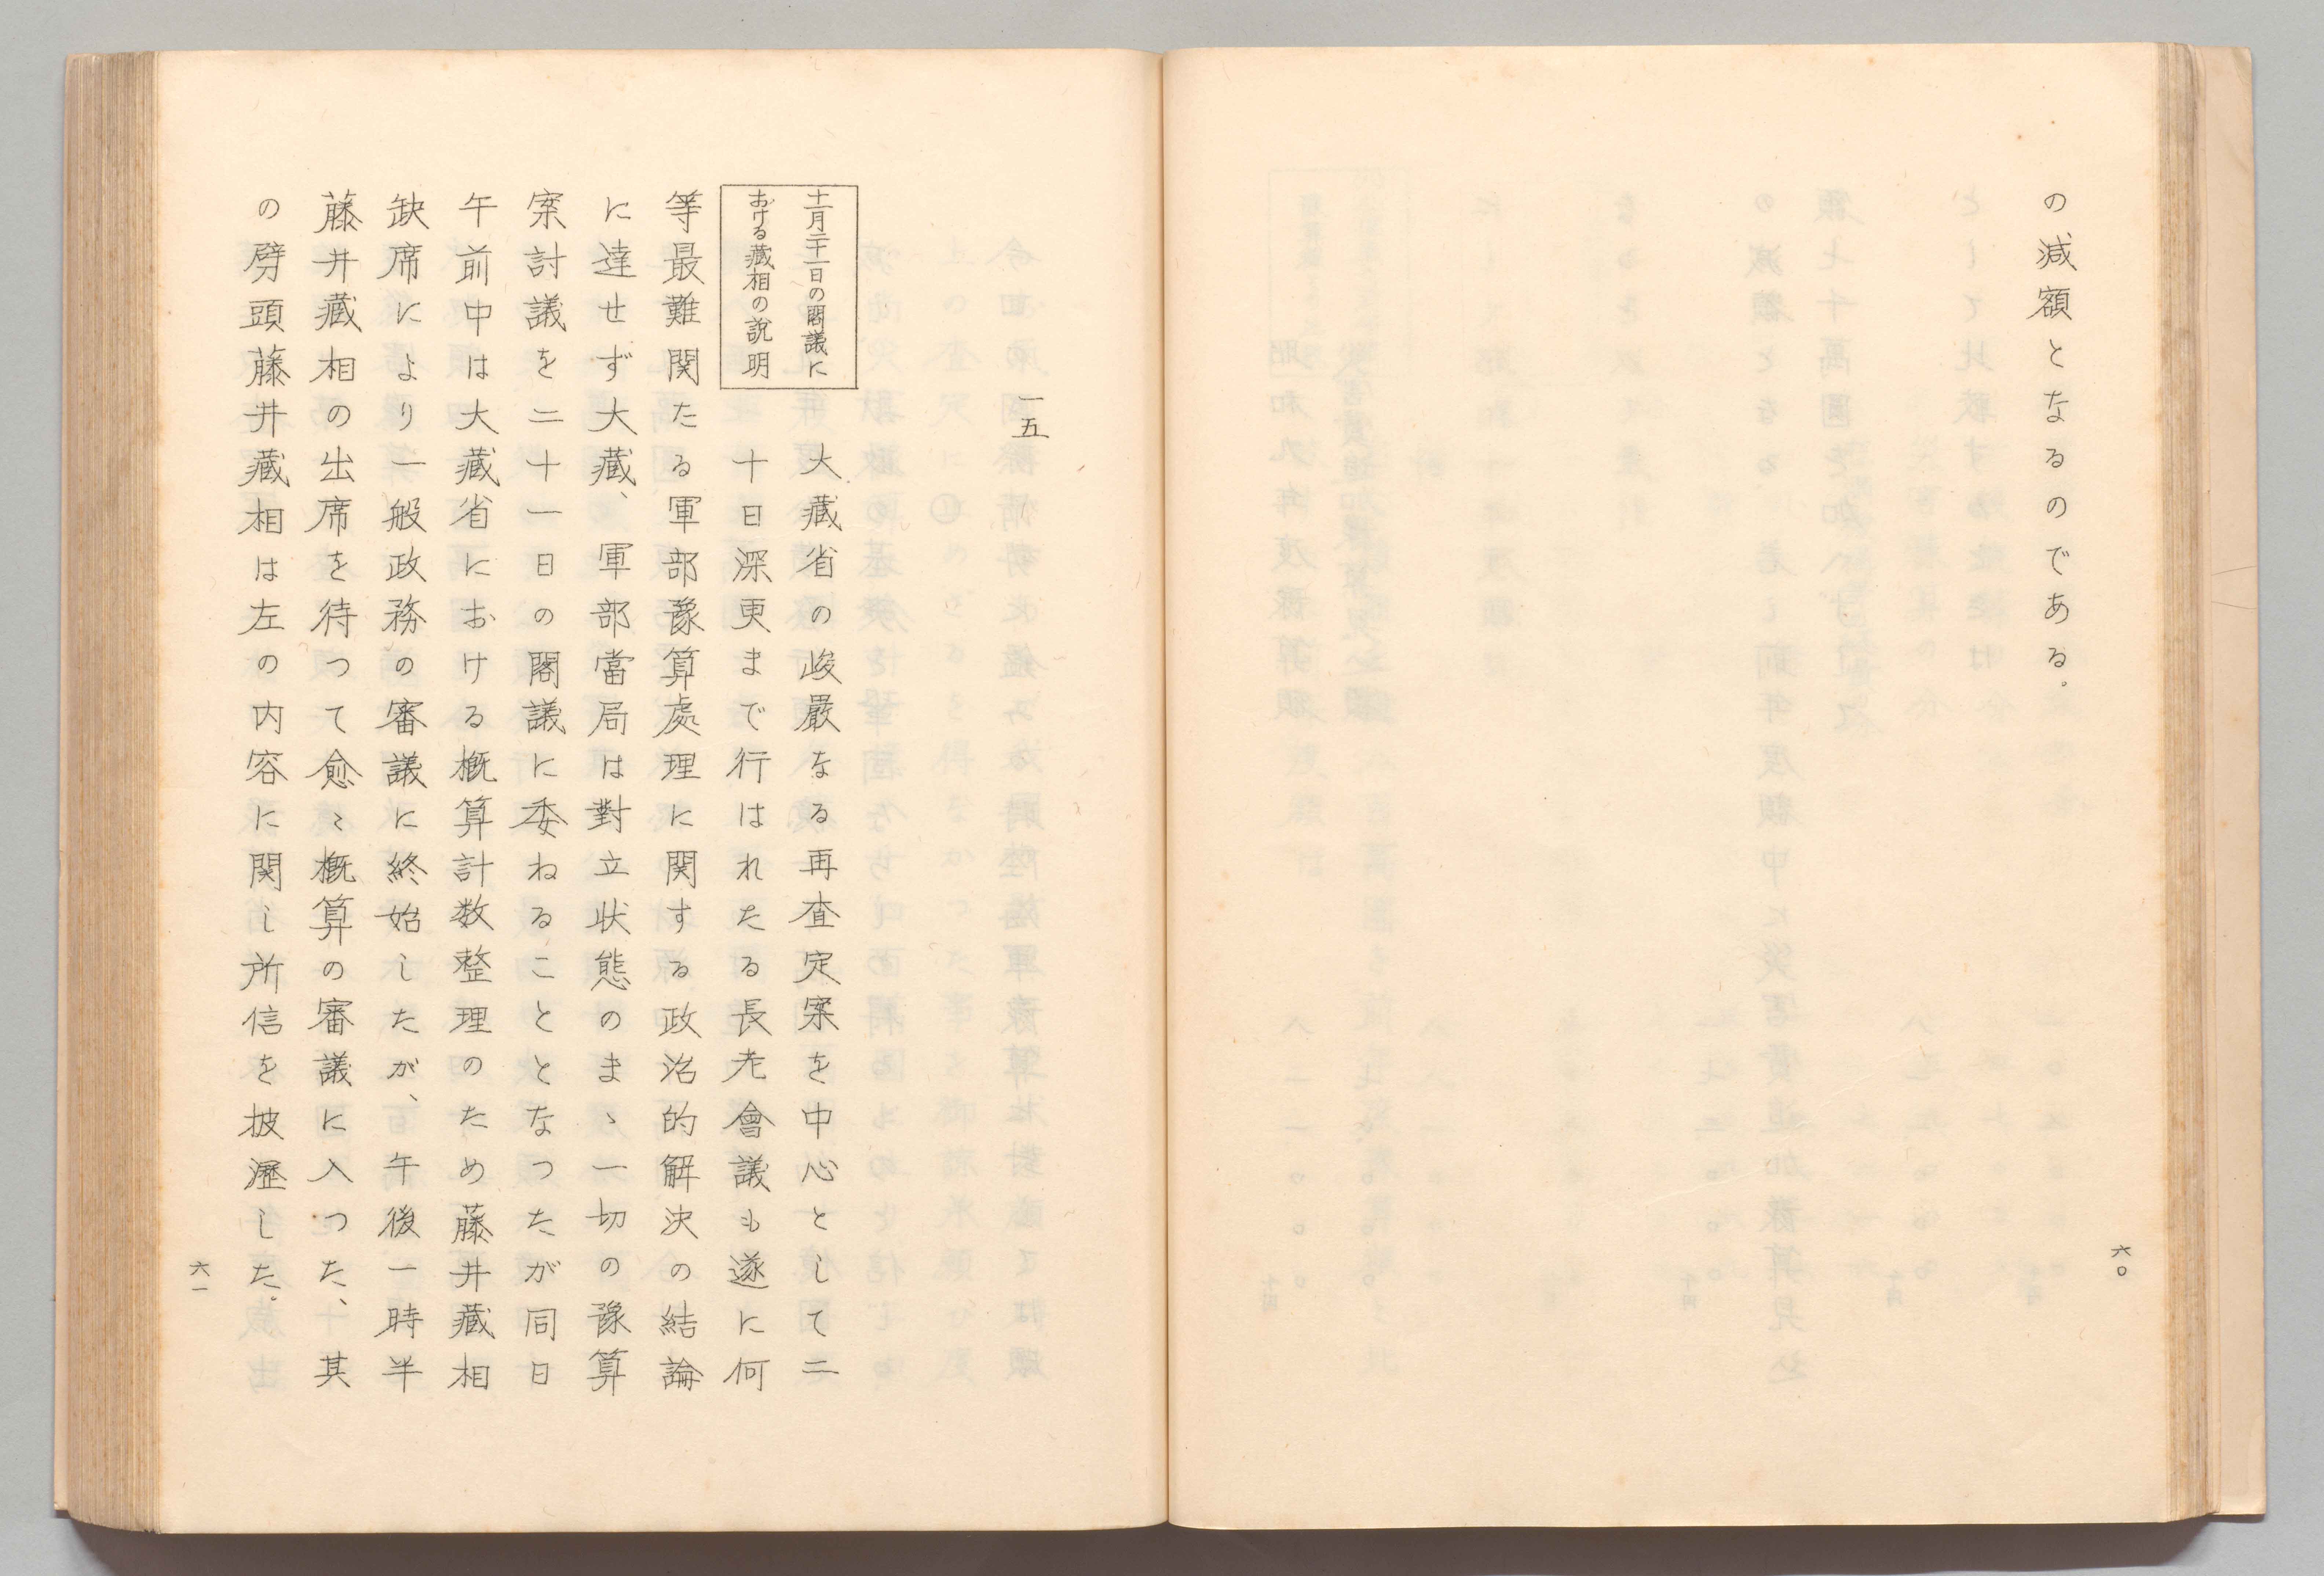 の減額となるのである。
六〇
一五
十一月二十一日の閣議に
おける藏相の説明
大藏省の峻嚴なる再査定案を中心として二
十日深更まで行はれたる長老會議も遂に何
等最難関たる軍部豫算處理に関する政治的解決の結論
に達せず大藏、軍部當局は對立状態のまゝ一切の豫算
案討議を二十一日の閣議に委ねることとなつたが同日
午前中は大藏省における概算計数整理のため藤井藏相
缺席により一般政務の審議に終始したが、午後一時半
藤井藏相の出席を待つて愈〻概算の審議に入つた、其
の劈頭藤井藏相は左の内容に関し所信を披瀝した。
六一